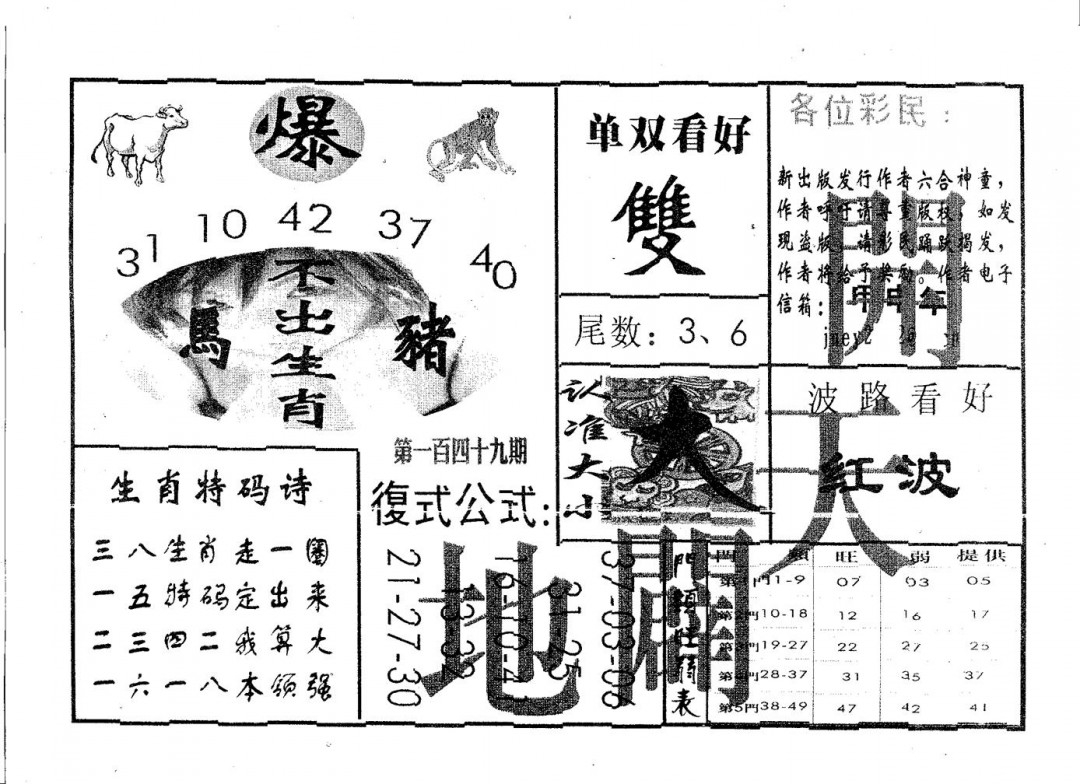 爆
31 10 42 37 40
不出生肖
馬 豬
第一百四十九期
单双看好
雙
尾数：3、6
认准大小
大
各位彩民：
新出版发行作者六合神童，
作者呼吁请尊重版权，如发
现盗版，请彩民踊跃揭发，
作者将给予奖励。作者电子
信箱：
甲申年
開
天
地
闢
波路看好
红波
生肖特码诗
三八生肖走一圈
一五特码定出来
二三四二我算大
一六一八本领强
復式公式：
21-27-30
13-32
16-10-41
31-25
37-03-06
門類旺弱表
門類 旺 弱 提供
第1門1-9 07 03 05
第2門10-18 12 16 17
第3門19-27 22 27 25
第4門28-37 31 35 37
第5門38-49 47 42 41